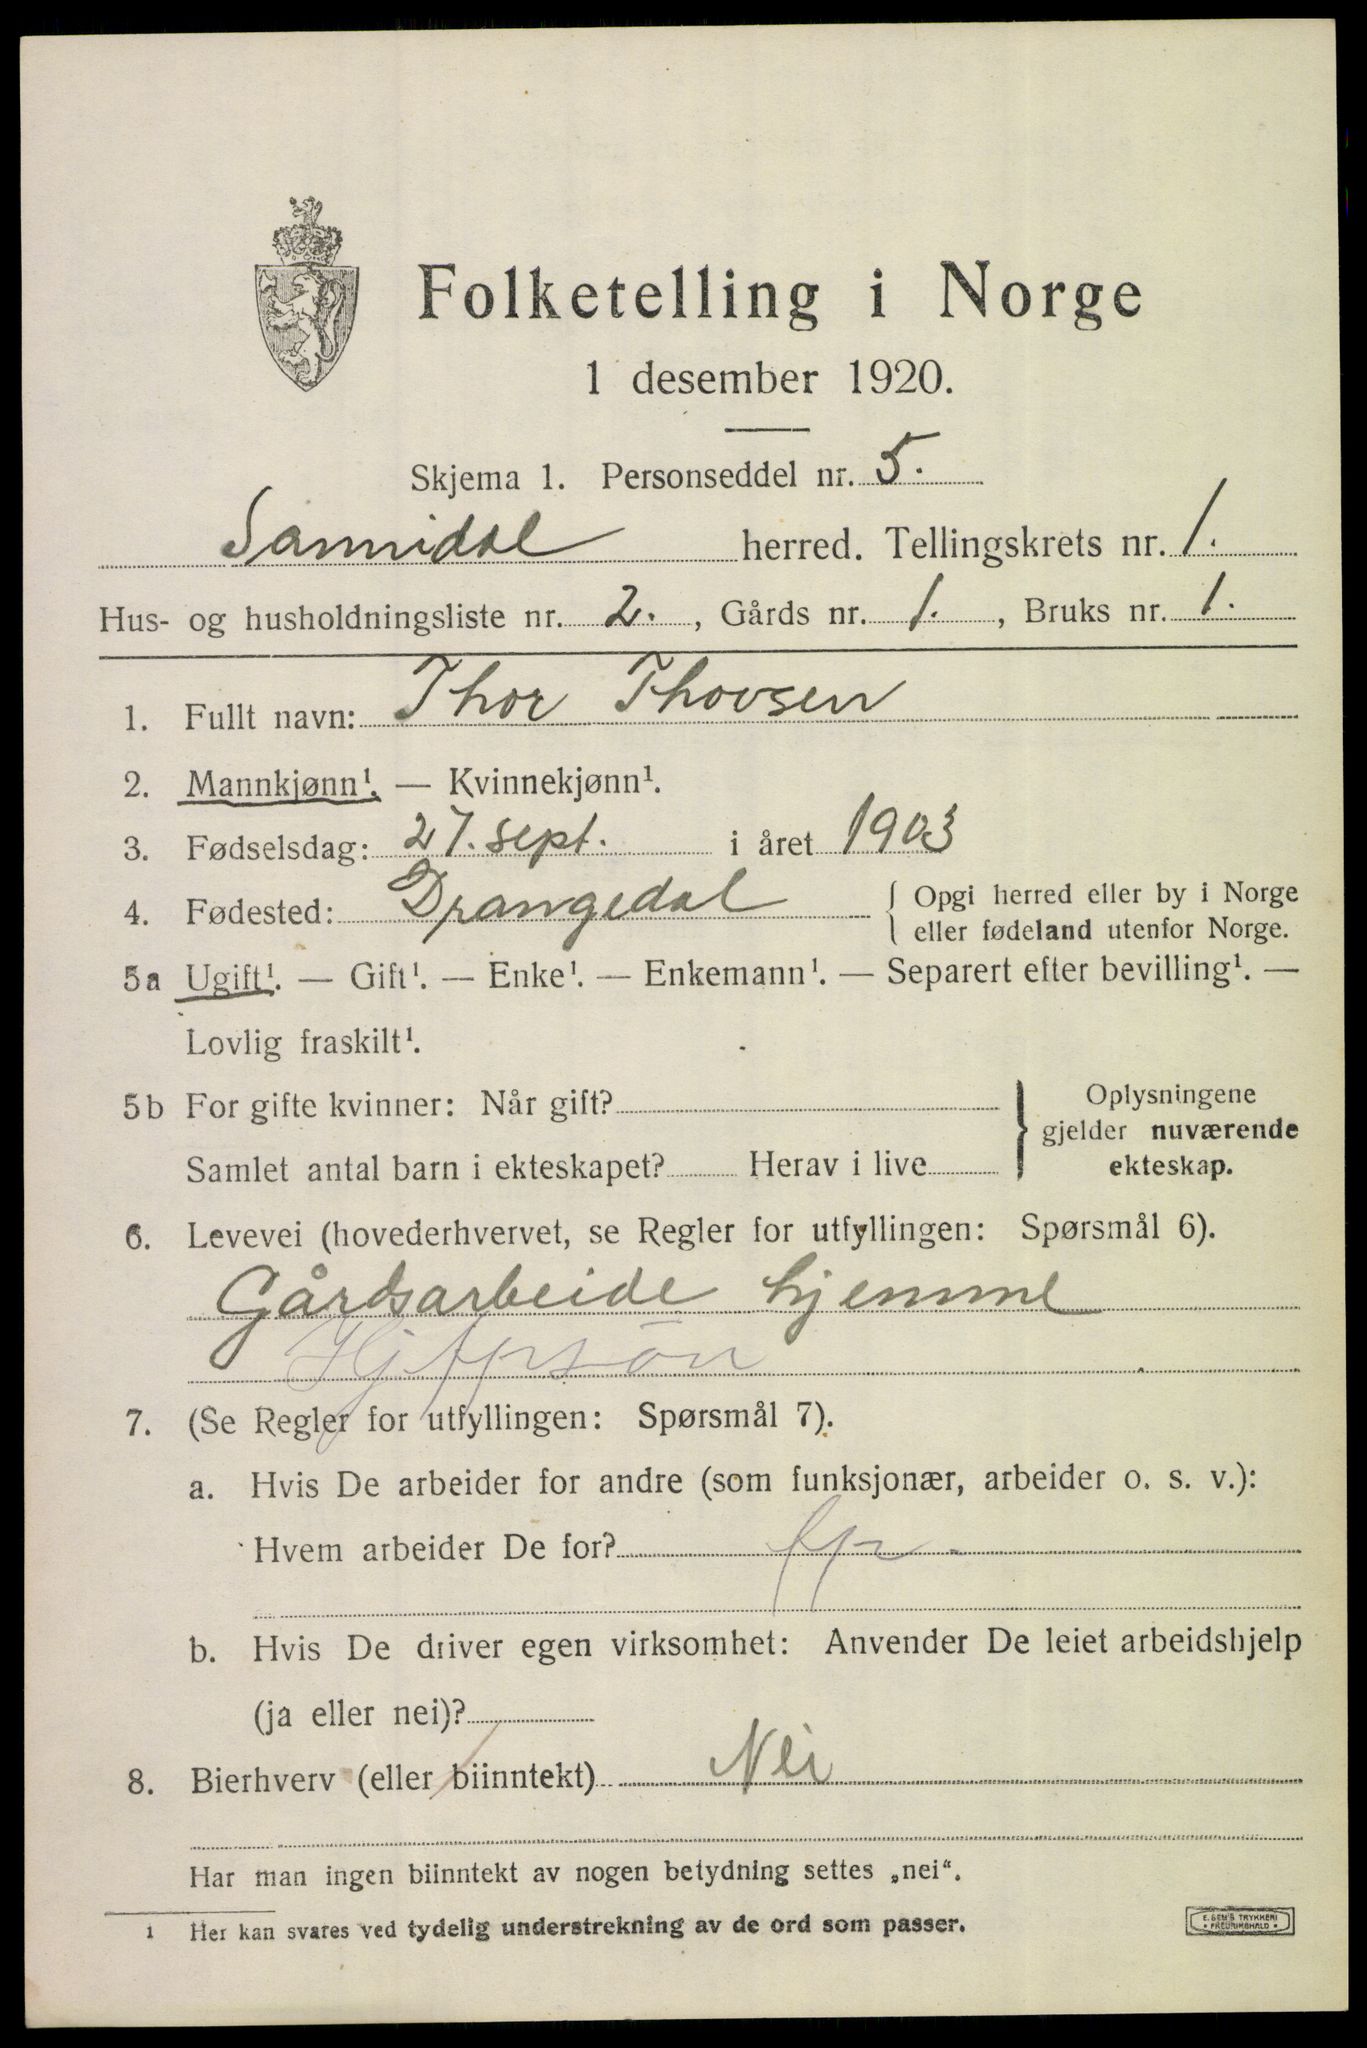 Folketelling i Norge
1 desember 1920.
Skjema 1. Personseddel nr. 5.
Sannidal herred. Tellingskrets nr. 1.
Hus- og husholdningsliste nr. 2., Gårds nr. 1., Bruks nr. 1.
1. Fullt navn: Thor Thorsen
2. Mannkjønn¹. — Kvinnekjønn¹.
3. Fødselsdag: 27. sept. i året 1903
4. Fødested: Drangedal { Opgi herred eller by i Norge
eller fødeland utenfor Norge.
5a Ugift¹. — Gift¹. — Enke¹. — Enkemann¹. — Separert efter bevilling¹. —
Lovlig fraskilt¹.
5b For gifte kvinner: Når gift?
Samlet antal barn i ekteskapet? Herav i live
} Oplysningene
gjelder nuværende
ekteskap.
6. Levevei (hovederhvervet, se Regler for utfyllingen: Spørsmål 6).
Gårdsarbeide hjemme
7. (Se Regler for utfyllingen: Spørsmål 7).
a. Hvis De arbeider for andre (som funksjonær, arbeider o. s. v.):
Hvem arbeider De for?
b. Hvis De driver egen virksomhet: Anvender De leiet arbeidshjelp
(ja eller nei)?
8. Bierhverv (eller biinntekt) Nei
Har man ingen biinntekt av nogen betydning settes „nei“.
1 Her kan svares ved tydelig understrekning av de ord som passer.
E. SEM'S TRYKKERI
• FREDRIKSHALD •